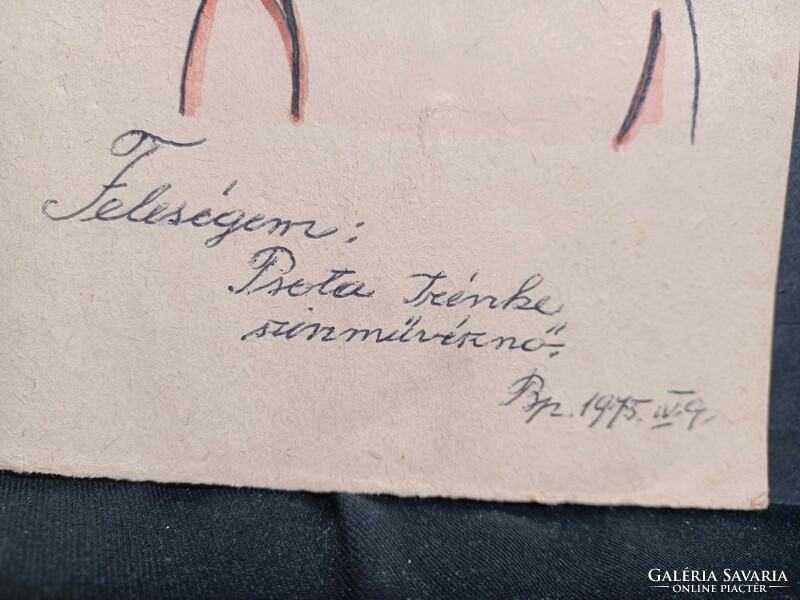 Feleségem:
Psota Irénke
szinművésznő.
Bp. 1975. IV. 9.
GALÉRIA SAVARIA
ONLINE PIACTÉR